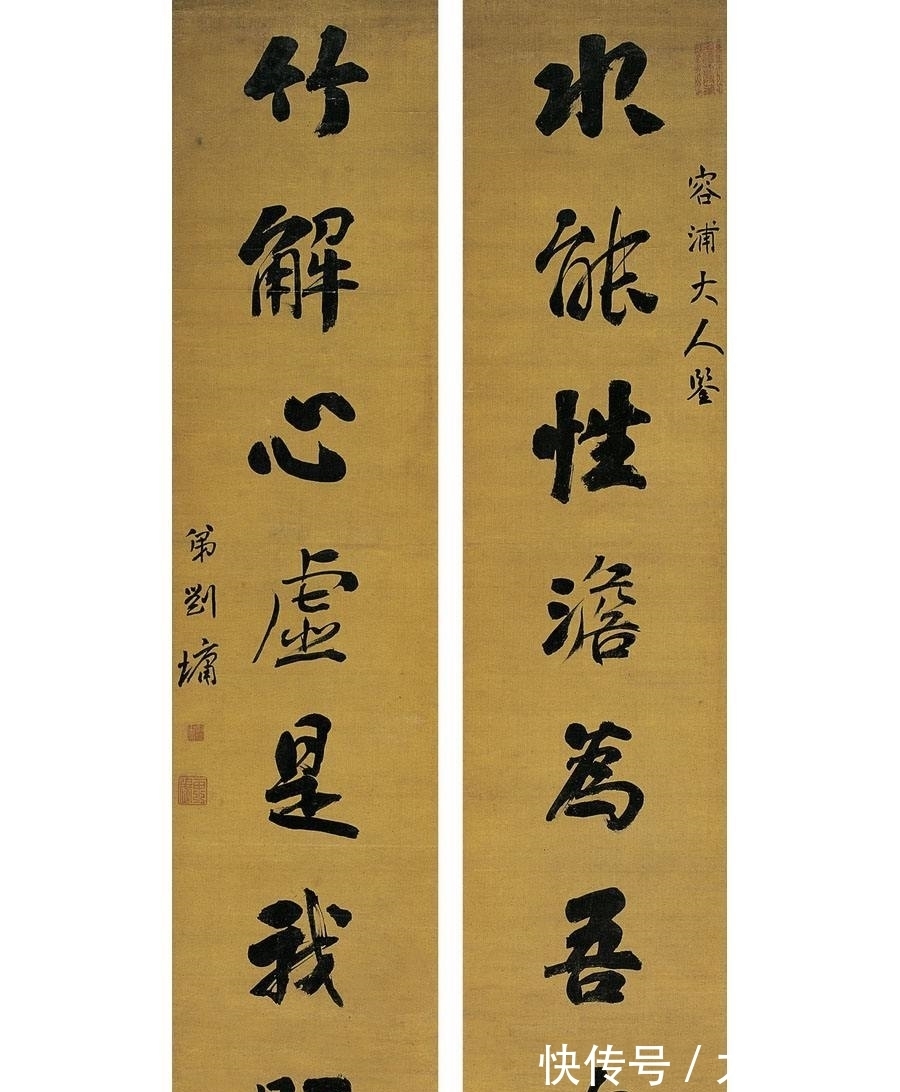 容浦大人鑒
水能性澹為吾
竹解心虛是我
弟劉墉
快传号 /